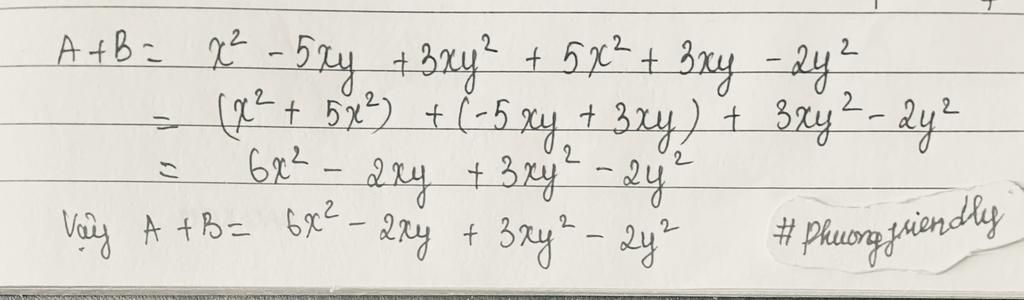 A + B = x² - 5xy + 3xy² + 5x² + 3xy - 2y²
= (x² + 5x²) + (-5xy + 3xy) + 3xy² - 2y²
= 6x² - 2xy + 3xy² - 2y²
Vậy A + B = 6x² - 2xy + 3xy² - 2y²
#Phuongfriendly